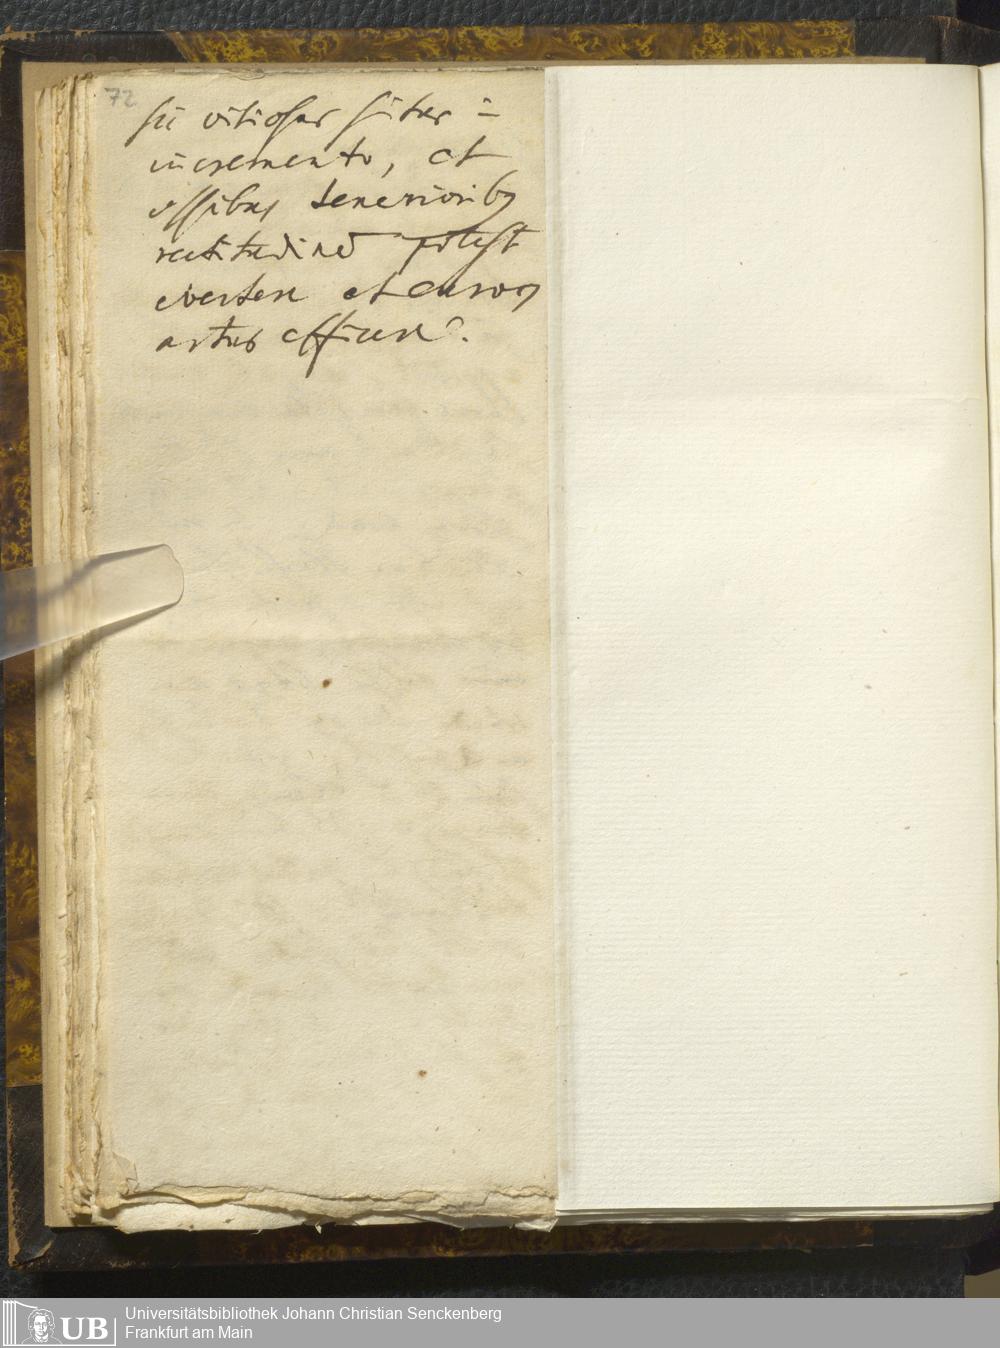 72
sic vitiosus situs in
incremento, et
ossibus tenerioribꝫ
rectitudinē potest
evertere et curvos
artus efficere.
UB
Universitätsbibliothek Johann Christian Senckenberg
Frankfurt am Main